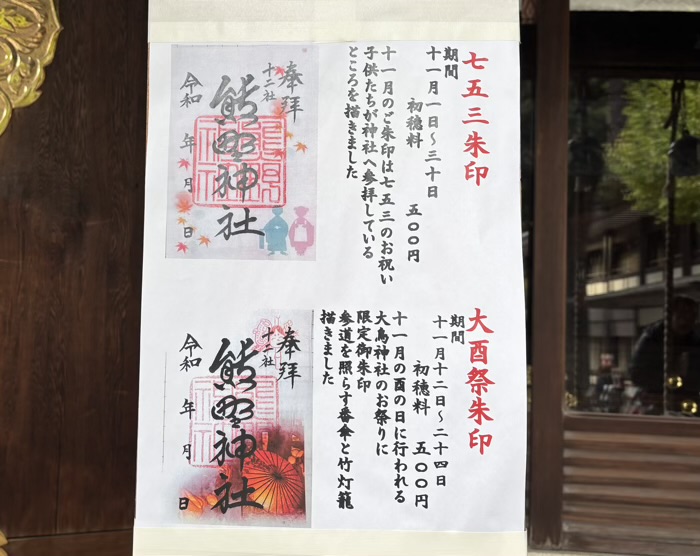 七五三朱印
期間
十一月一日～三十日
初穂料 五〇〇円
十一月のご朱印は七五三のお祝い
子供たちが神社へ参拝している
ところを描きました
奉拝
十二社
熊野神社
令和 年 月 日
大酉祭朱印
期間
十一月十二日～二十四日
初穂料 五〇〇円
十一月の酉の日に行われる
大鳥神社のお祭りに
限定御朱印
参道を照らす番傘と竹灯籠
描きました
奉拝
十二社
熊野神社
令和 年 月 日